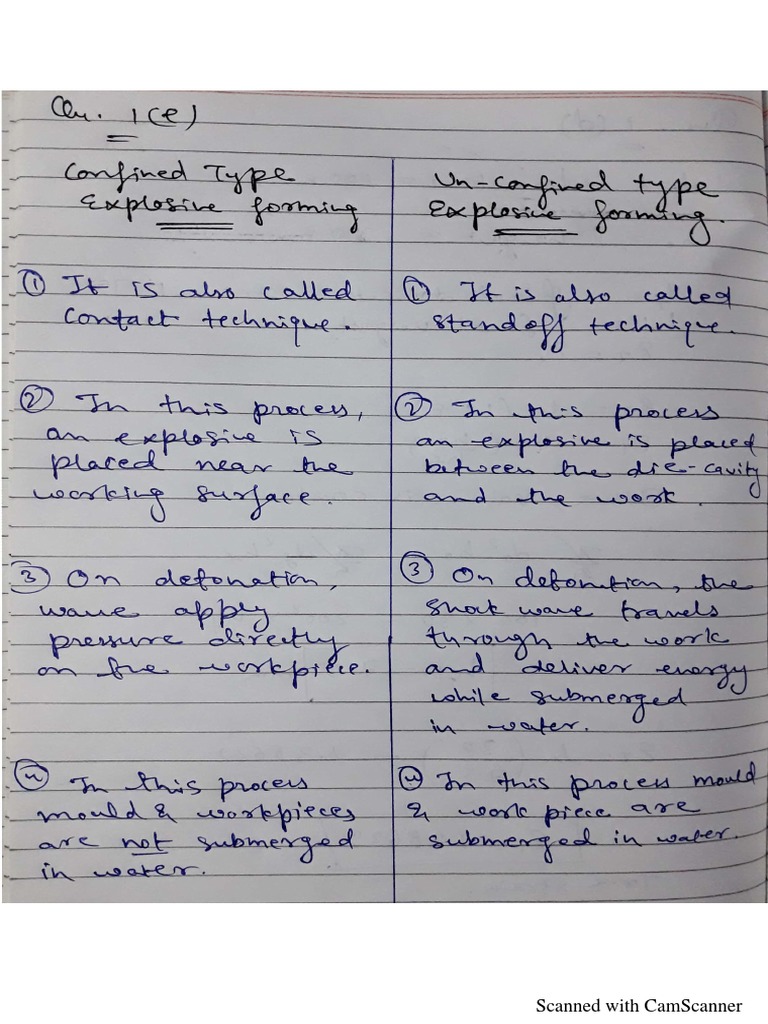 Qu. 1(e)
Confined Type
Explosive forming
① It is also called
Contact technique.
② In this process,
an explosive is
placed near the
working surface.
③ On detonation,
wave apply
pressure directly
on the workpiece.
④ In this process
mould & workpieces
are not submerged
in water.
Un-confined type
Explosive forming.
① It is also called
standoff technique.
② In this process
an explosive is placed
between the die-cavity
and the work.
③ On detonation, the
shock wave travels
through the work
and deliver energy
while submerged
in water.
④ In this process mould
& work piece are
submerged in water.
Scanned with CamScanner